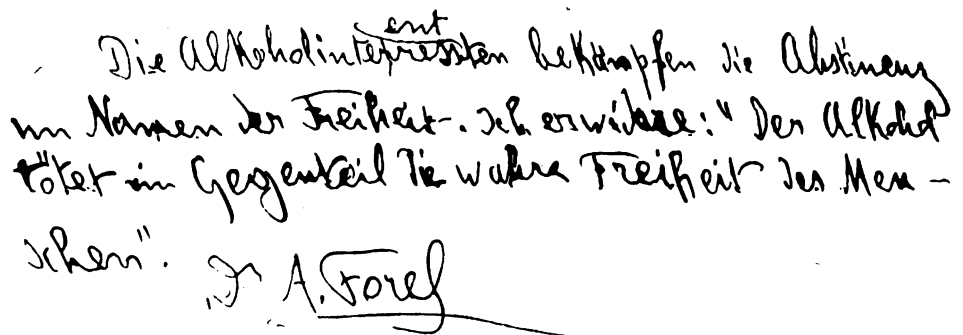 Die Alkoholinteressenten bekämpfen die Abstinenz
im Namen der Freiheit. Ich erwidere: "Der Alkohol
tötet im Gegenteil die wahre Freiheit des Men-
schen".
Dr A. Forel